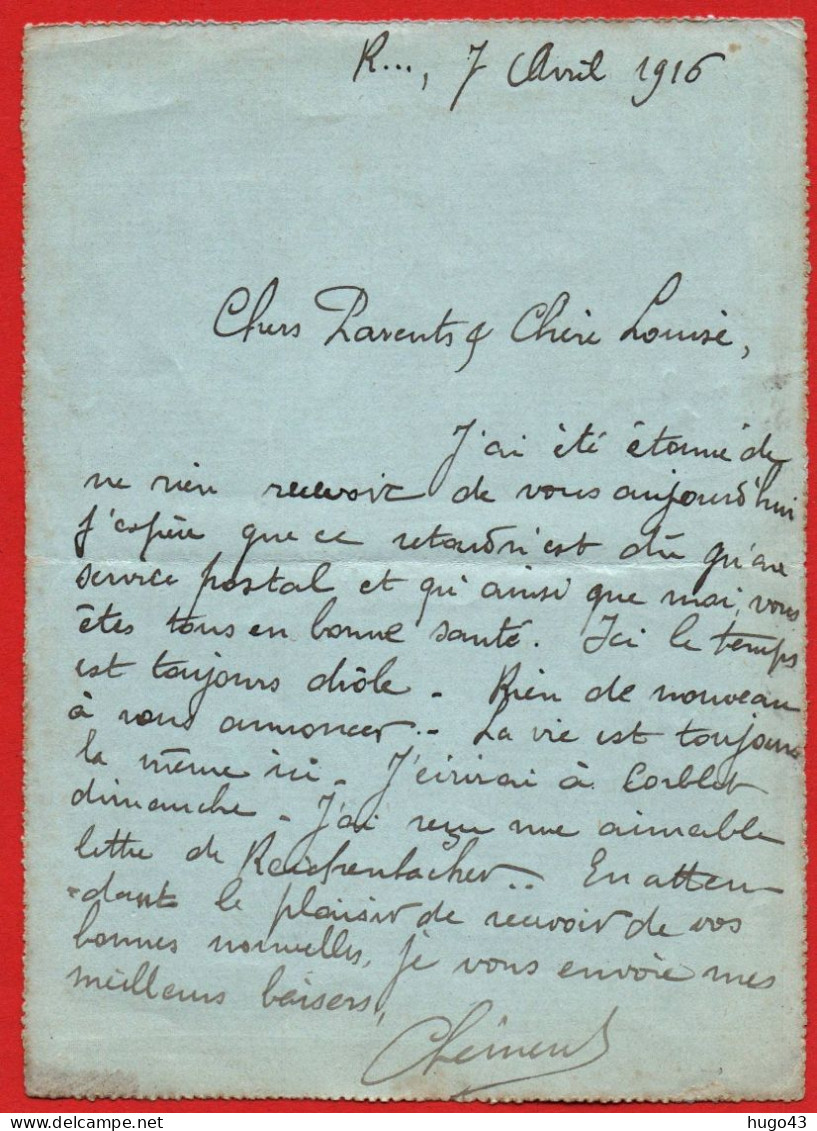 R..., 7 Avril 1916
Chers Parents & Chère Louise,
J'ai été étonné de
ne rien recevoir de vous aujourd'hui
j'espère que ce retard n'est dû qu'au
service postal et qu'ainsi que moi, vous
êtes tous en bonne santé. Ici le temps
est toujours drôle - Rien de nouveau
à vous annoncer - La vie est toujours
la même ici - J'écrirai à Corblet
dimanche - J'ai reçu une aimable
lettre de Reichenbacher.. En atten
-dant le plaisir de recevoir de vos
bonnes nouvelles, je vous envoie mes
meilleurs baisers,
Clément
hugo43